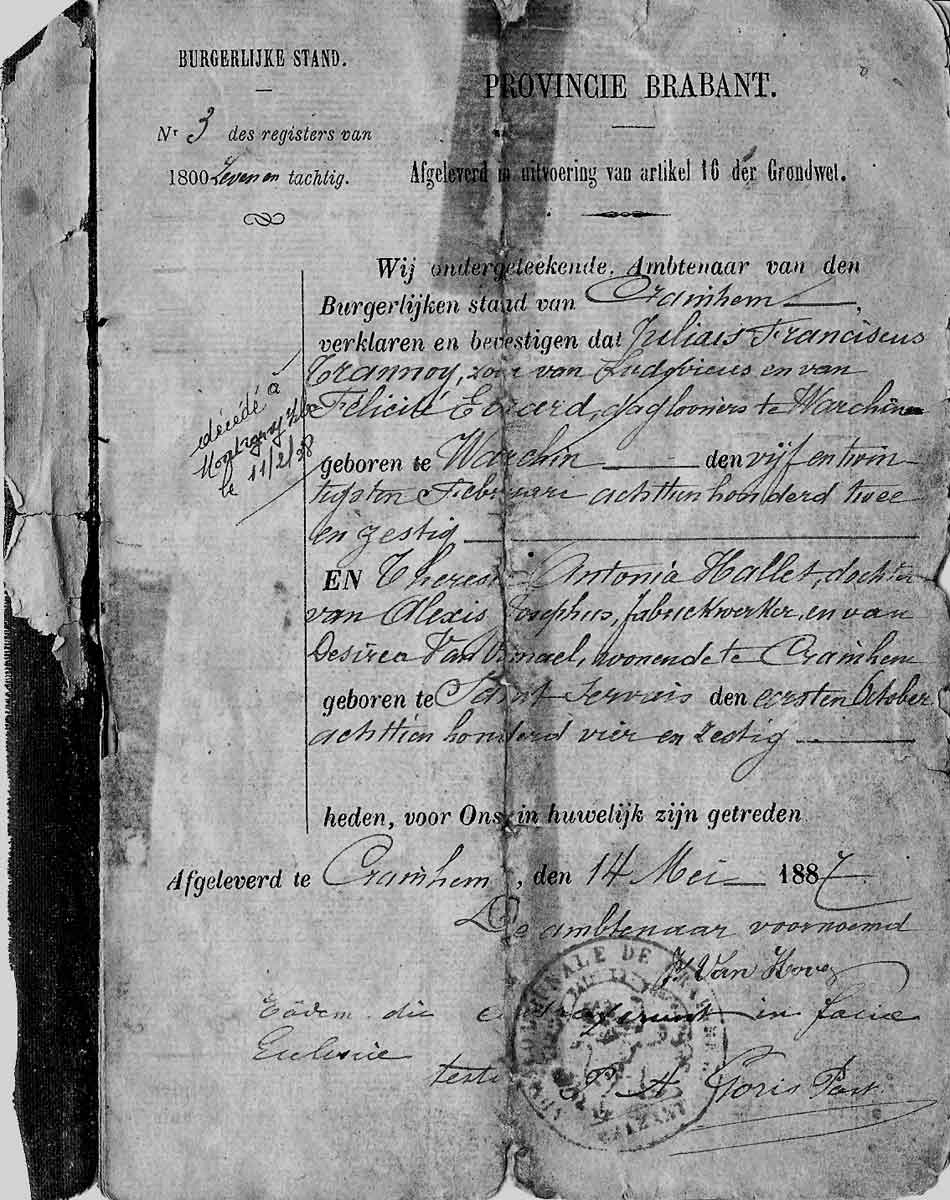 BURGERLIJKE STAND.
Nr 3 des registers van
1800 Zeven en tachtig.
PROVINCIE BRABANT.
Afgeleverd in uitvoering van artikel 16 der Grondwet.
Wij ondergeteekende, Ambtenaar van den
Burgerlijken stand van Crainhem,
verklaren en bevestigen dat Juliais Franciscus
Trannoy, zoon van Ludovicus en van
Félicité Evrard, daglooners te Warchin
geboren te Warchin den vijf en twin-
tigsten Februari achttien honderd twee
en zestig
décédé à
le 11/2/38
EN Theresia Antonia Hallet, dochter
van Alexis Josephus, fabriekwerker, en van
Desirea Van Ismael, wonende te Crainhem
geboren te Saint Servais den eersten October
achttien honderd vier en zestig
heden, voor Ons, in huwelijk zijn getreden
Afgeleverd te Crainhem, den 14 Mei 1887
De ambtenaar voornoemd
J. Van Hove
Eâdem die in facie
Ecclesiæ
testi P. A. Goris Past.